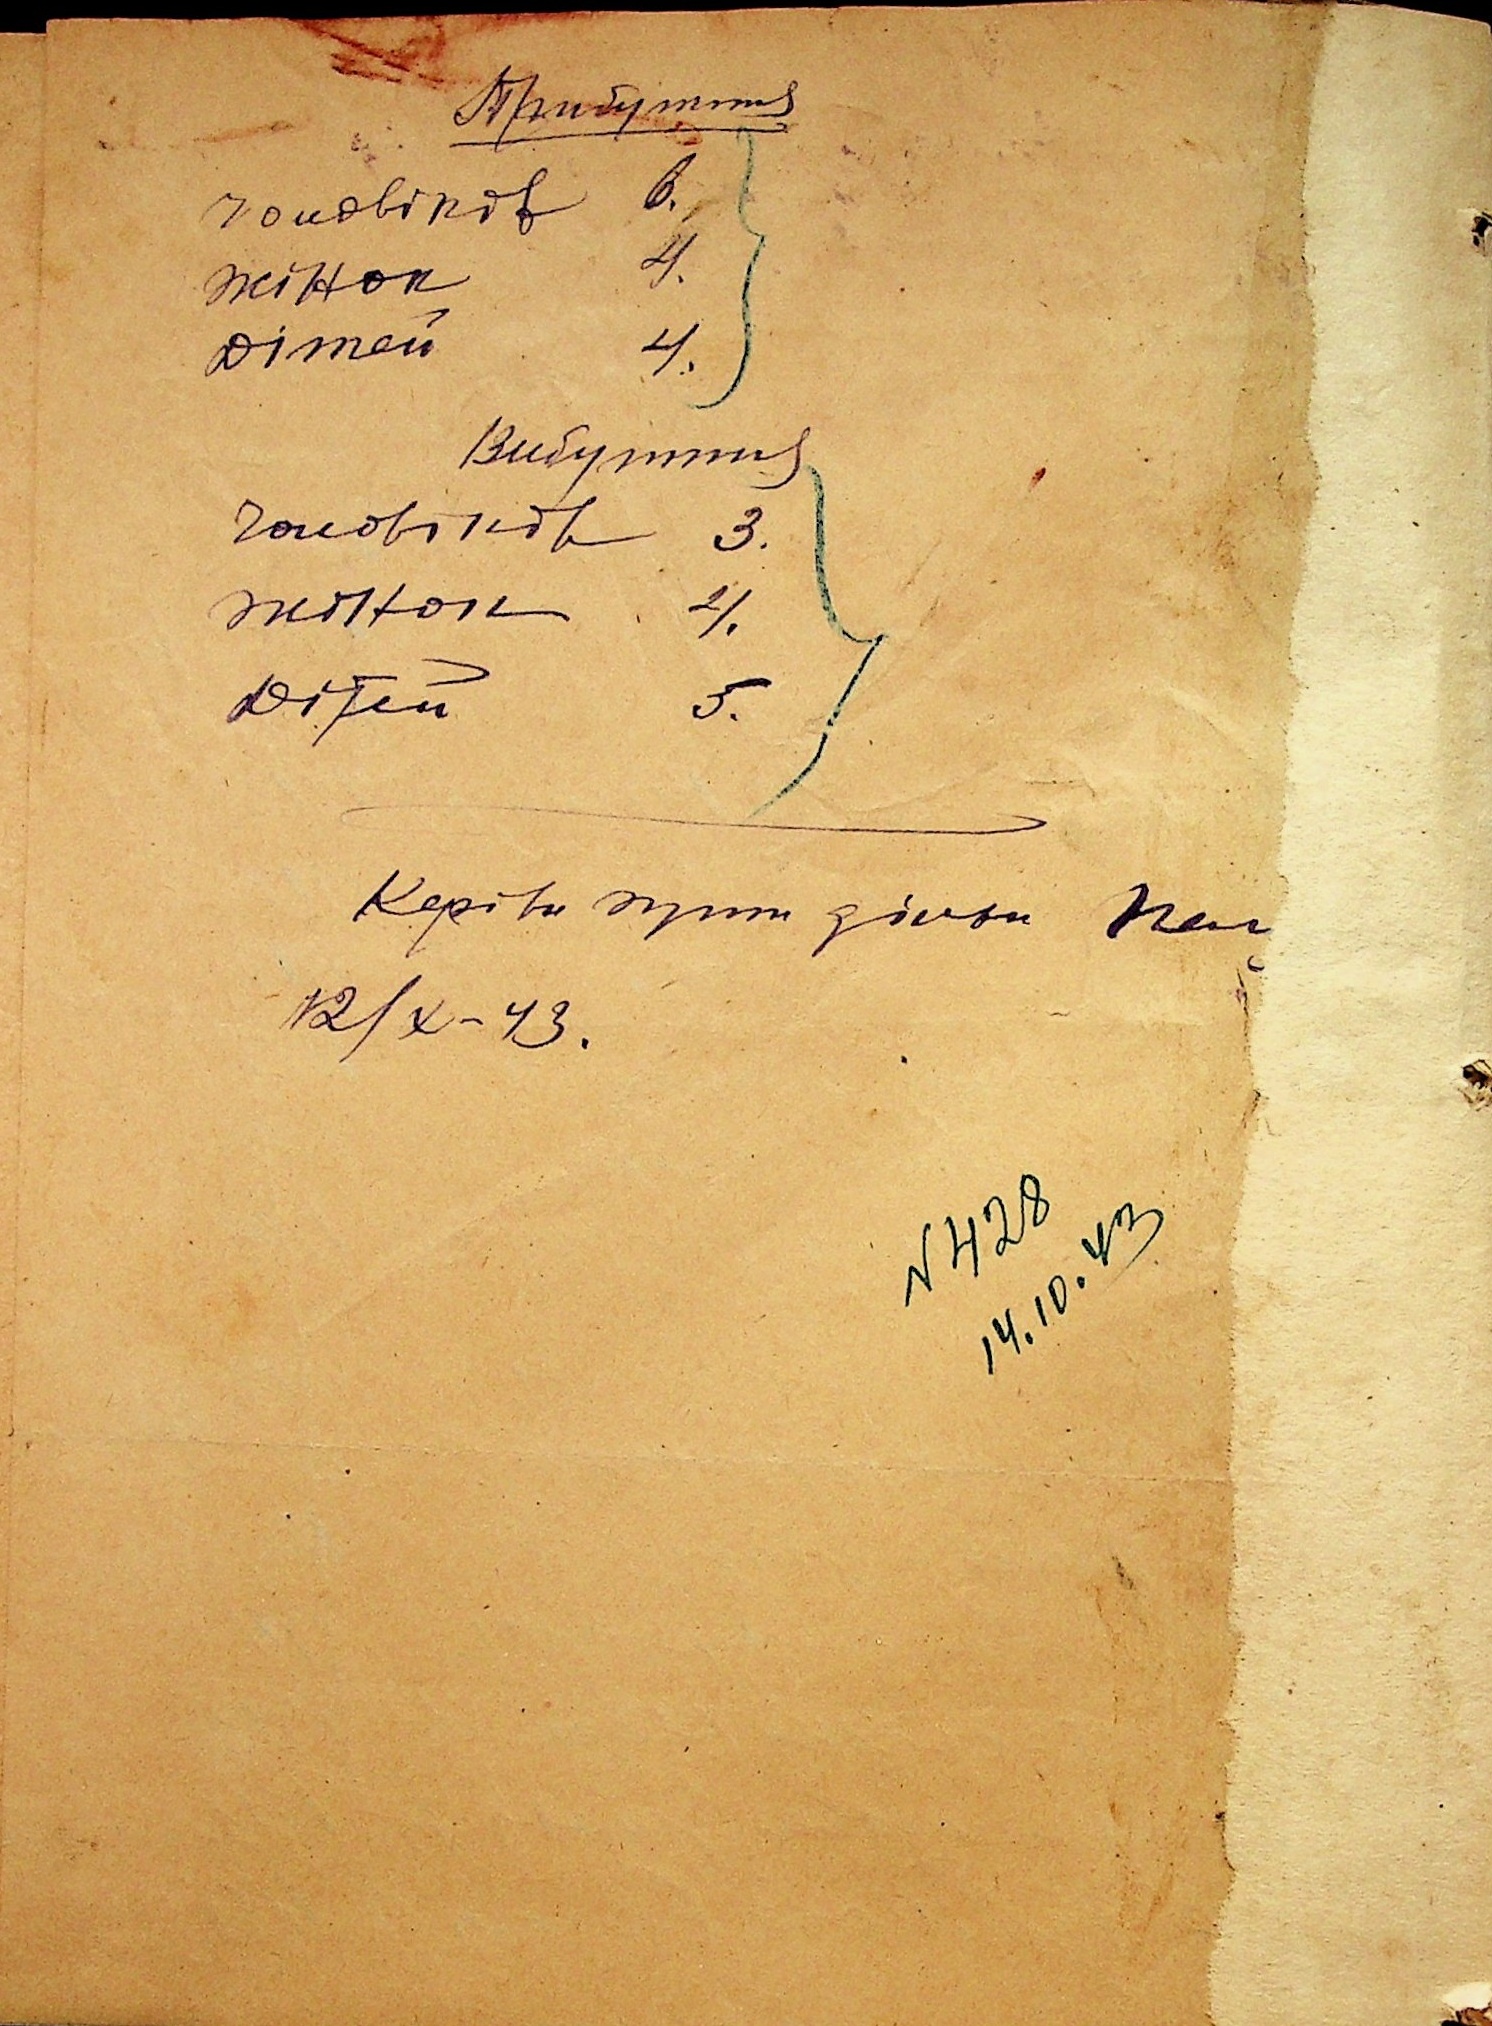 Прибуття
чоловіків 6.
жінок 4.
дітей 4.
Вибуття
чоловіків 3.
жінок 4.
дітей 5.
Керівн
12/X-43.
N 428
14.10.43